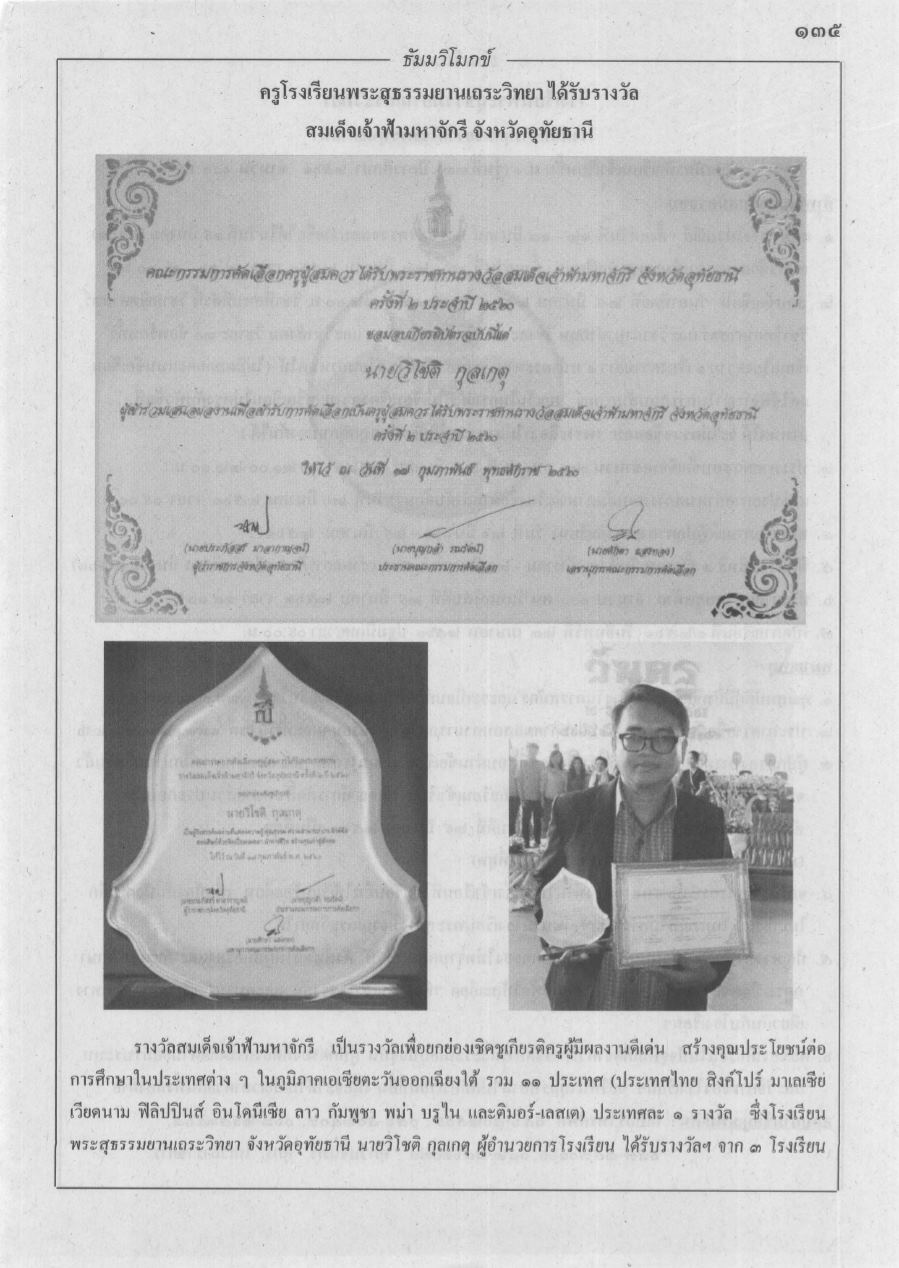 ๑๓๕
ธัมมวิโมกข์
ครูโรงเรียนพระสุธรรมยานเถระวิทยา ได้รับรางวัล
สมเด็จเจ้าฟ้ามหาจักรี จังหวัดอุทัยธานี
คณะกรรมการคัดเลือกครูผู้สมควรได้รับพระราชทานรางวัลสมเด็จเจ้าฟ้ามหาจักรี จังหวัดอุทัยธานี
ครั้งที่ ๒ ประจำปี ๒๕๖๐
ขอมอบเกียรติบัตรฉบับนี้แด่
นายวิโชติ กุลเกตุ
ผู้เข้าร่วมเสนอผลงานเพื่อเข้ารับการคัดเลือกเป็นครูผู้สมควรได้รับพระราชทานรางวัลสมเด็จเจ้าฟ้ามหาจักรี จังหวัดอุทัยธานี
ครั้งที่ ๒ ประจำปี ๒๕๖๐
ให้ไว้ ณ วันที่ ๑๗ กุมภาพันธ์ พุทธศักราช ๒๕๖๐
ผู้ว่าราชการจังหวัดอุทัยธานี ประธานคณะกรรมการคัดเลือก เลขานุการคณะกรรมการคัดเลือก
นายวิโชติ กุลเกตุ
รางวัลสมเด็จเจ้าฟ้ามหาจักรี เป็นรางวัลเพื่อยกย่องเชิดชูเกียรติครูผู้มีผลงานดีเด่น สร้างคุณประโยชน์ต่อ
การศึกษาในประเทศต่าง ๆ ในภูมิภาคเอเซียตะวันออกเฉียงใต้ รวม ๑๑ ประเทศ (ประเทศไทย สิงค์โปร์ มาเลเซีย
เวียดนาม ฟิลิปปินส์ อินโดนีเซีย ลาว กัมพูชา พม่า บรูไน และติมอร์-เลสเต) ประเทศละ ๑ รางวัล ซึ่งโรงเรียน
พระสุธรรมยานเถระวิทยา จังหวัดอุทัยธานี นายวิโชติ กุลเกตุ ผู้อำนวยการโรงเรียน ได้รับรางวัลฯ จาก ๓ โรงเรียน